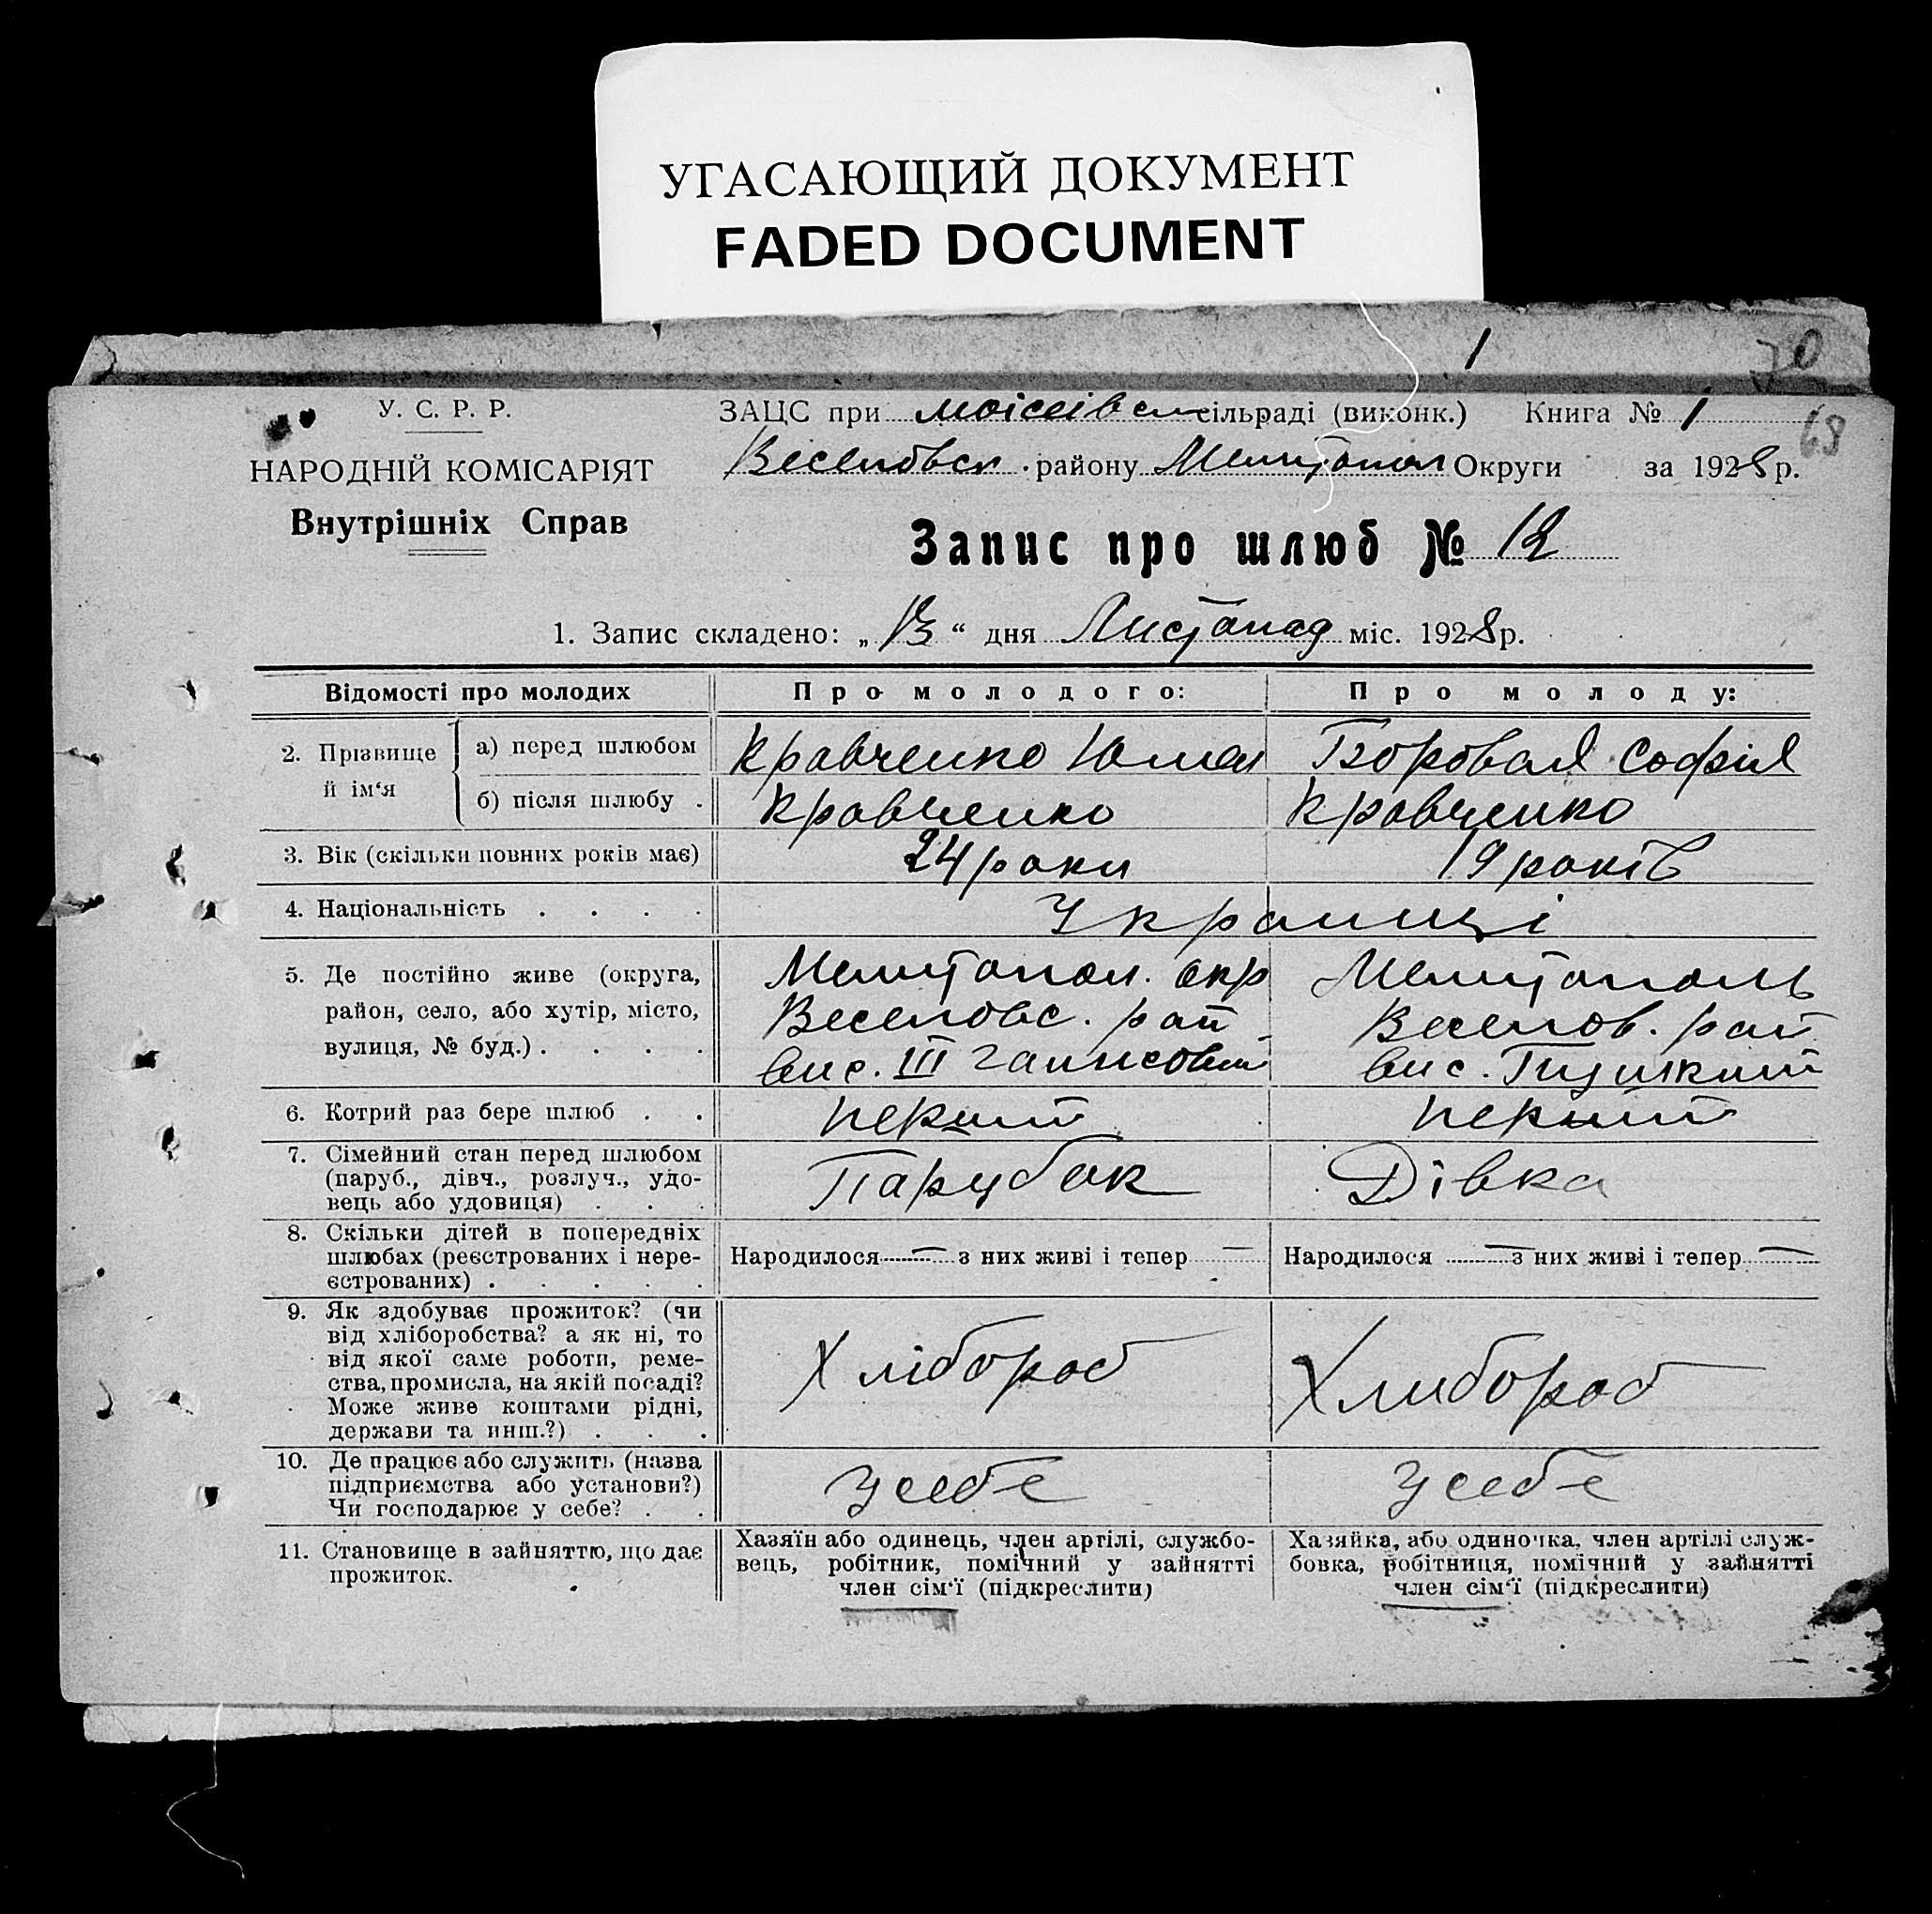 УГАСАЮЩИЙ ДОКУМЕНТ
FADED DOCUMENT
1
70
68
У. С. Р. Р.
НАРОДНІЙ КОМІСАРІЯТ
Внутрішніх Справ
ЗАЦС при Моісеівсь сільраді (виконк.) Книга № 1
Веселовск. району Мелітопол Округи за 1928 р.
Запис про шлюб № 12
1. Запис складено: „13“ дня Листопад міс. 1928 р.
Відомості про молодих
Про молодого:
Про молоду:
2. Прізвище й ім‘я
а) перед шлюбом
Кравченко
Боровая Софія
б) після шлюбу .
Кравченко
Кравченко
3. Вік (скільки повних років має)
24 роки
19 років
4. Національність . . . .
Українці
5. Де постійно живе (округа,
район, село, або хутір, місто,
вулиця, № буд.) . . . .
Мелитопол. окр
Веселовс. рай
вис. III
Мелитополь
Веселов. рай
вис.
6. Котрий раз бере шлюб . .
перший
перший
7. Сімейний стан перед шлюбом
(паруб., дівч., розлуч., удо-
вець або удовиця) . . .
Парубок
Дівка
8. Скільки дітей в попередніх
шлюбах (реєстрованих і нере-
єстрованих) . . . . .
Народилося — з них живі і тепер —
Народилося — з них живі і тепер —
9. Як здобуває прожиток? (чи
від хліборобства? а як ні, то
від якої саме роботи, реме-
ства, промисла, на якій посаді?
Може живе коштами рідні,
держави та инш.?) . . .
Хлібороб
Хлибороб
10. Де працює або служить (назва
підприємства або установи?)
Чи господарює у себе? . .
У себе
У себе
11. Становище в зайняттю, що дає
прожиток.
Хазяїн або одинець, член артілі, службо-
вець, робітник, помічний у зайнятті
член сім‘ї (підкреслити)
Хазяйка, або одиночка, член артілі служ-
бовка, робітниця, помічний у зайнятті
член сім‘ї (підкреслити)